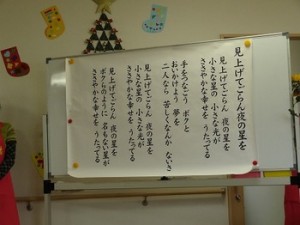 見上げてごらん夜の星を
見上げてごらん 夜の星を
小さな星の 小さな光が
ささやかな幸せを うたってる
手をつなごう ボクと
おいかけよう 夢を
二人なら 苦しくなんか ないさ
見上げてごらん 夜の星を
小さな星の 小さな光が
ささやかな幸せを うたってる
見上げてごらん 夜の星を
ボクらのように 名もない星が
ささやかな幸せを うたってる